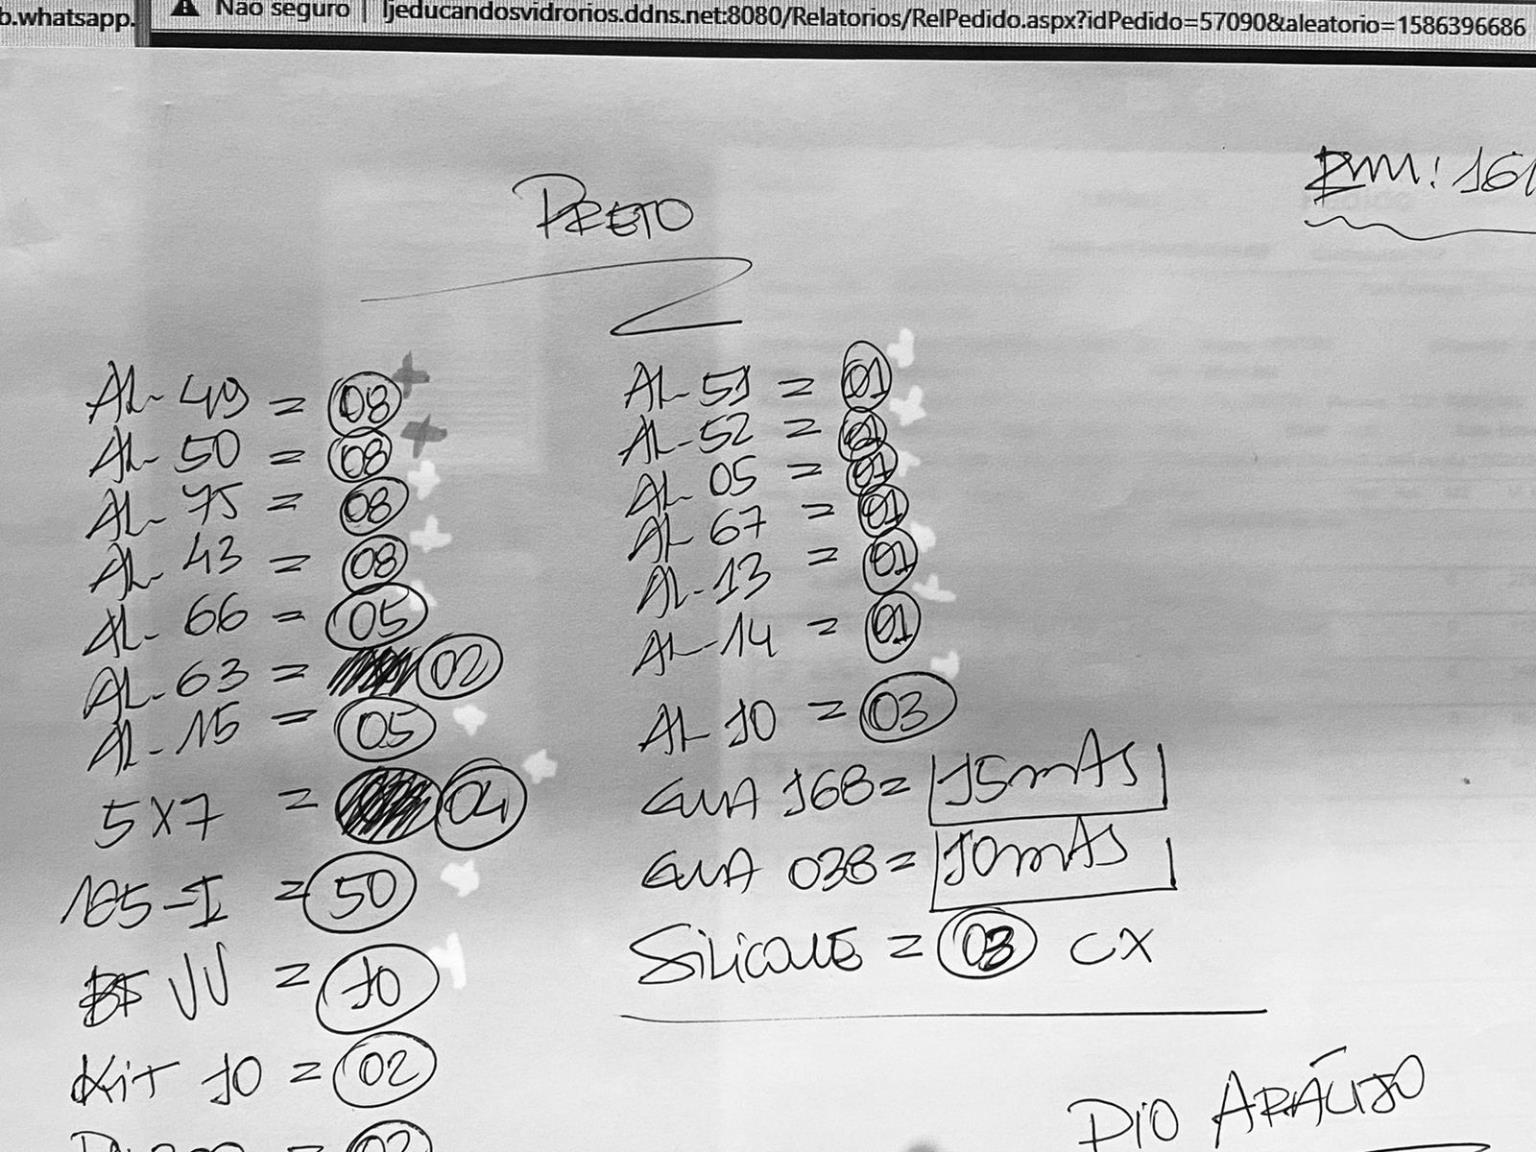 b.whatsapp.
Não seguro | ljeducandosvidrorios.ddns.net:8080/Relatorios/RelPedido.aspx?idPedido=57090&aleatorio=1586396686
161
PRETO
AL- 49 = 08
AL- 50 = 08
AL- 75 = 08
AL- 43 = 08
AL- 66 = 05
AL- 63 = 02
AL- 15 = 05
5X7 = 04
185-I = 50
BF VV = 10
KIT 10 = 02
= 02
AL- 51 = 01
AL- 52 = 01
AL- 05 = 01
AL- 67 = 01
AL- 13 = 01
AL- 14 = 01
AL 10 = 03
GUA 168 = 15mAS
GUA 038 = 10mAS
SILICONE = 03 CX
DIO ARAÚJO